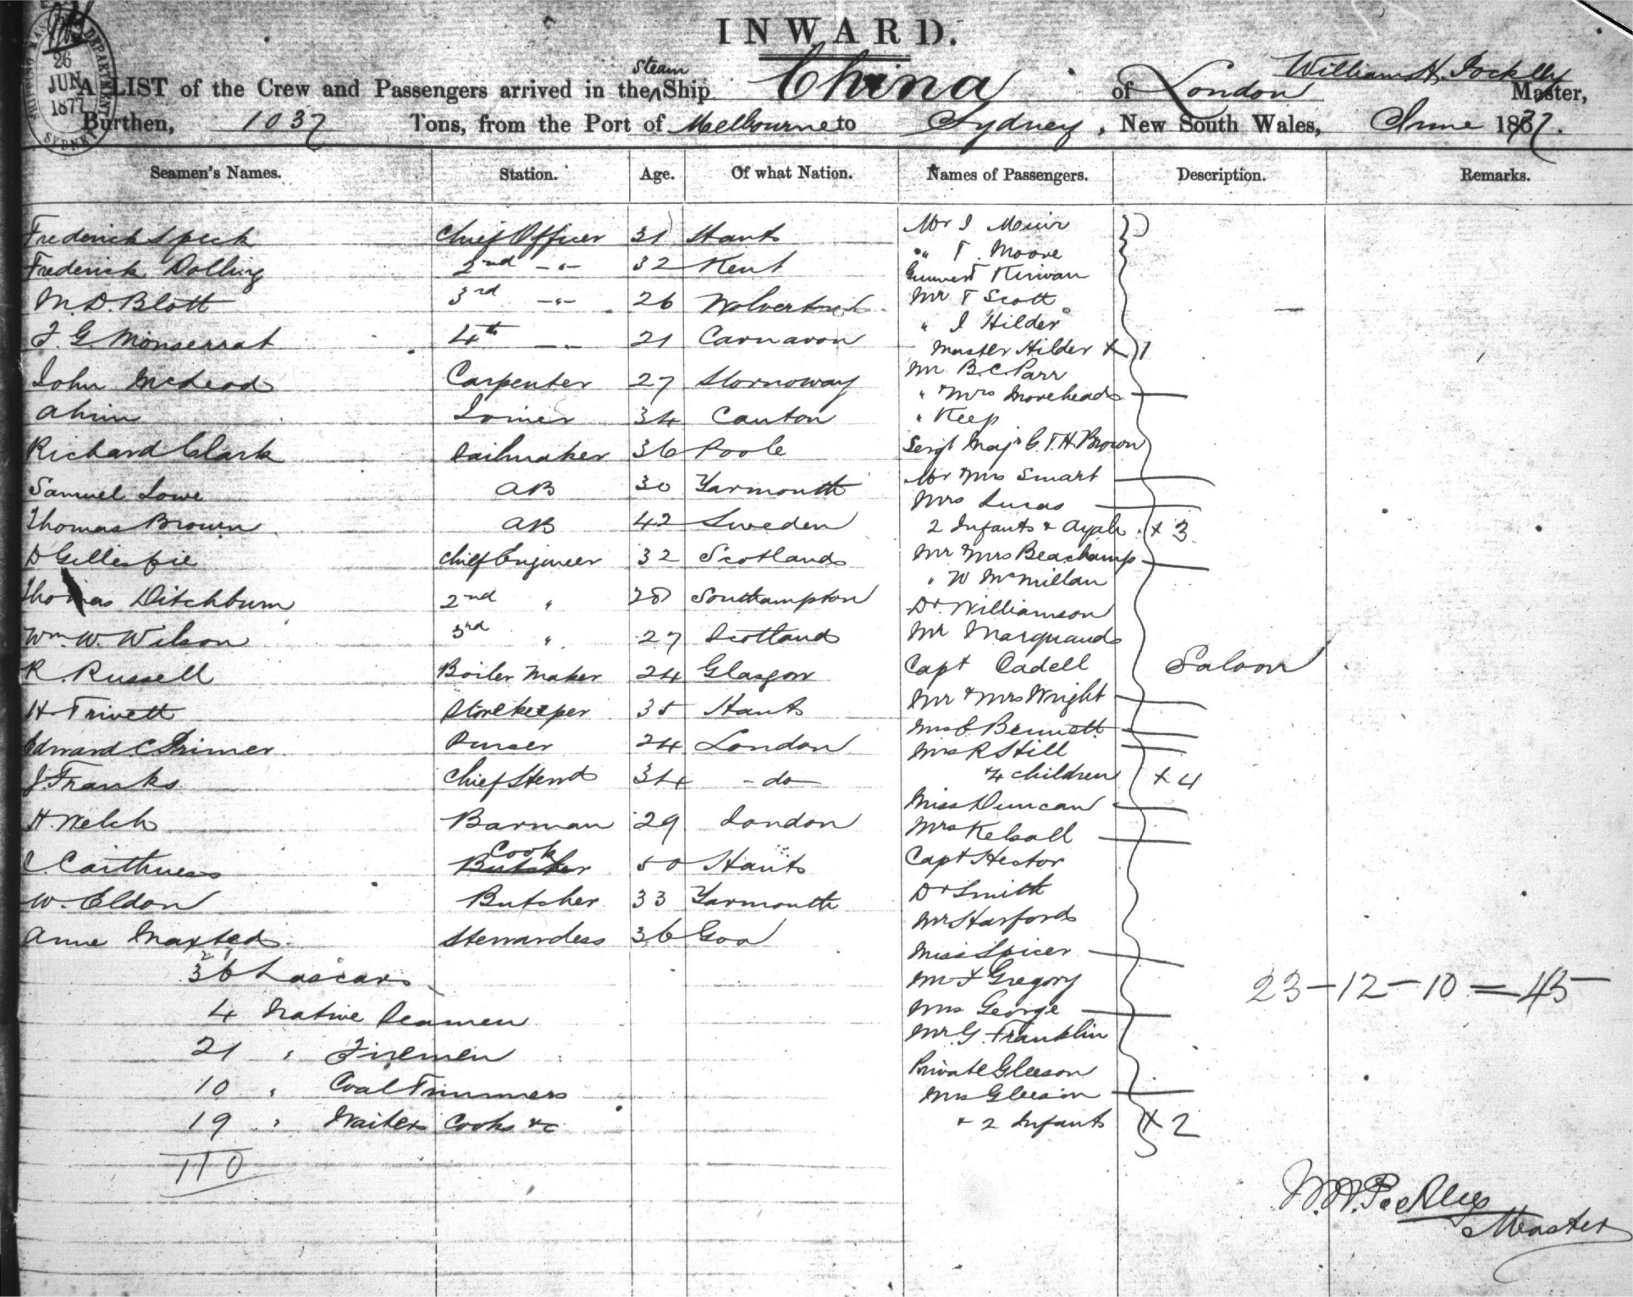 26
JUN
1877
SYDNEY
INWARD.
A LIST of the Crew and Passengers arrived in the Steam Ship China of London William H. Master,
Burthen, 1037 Tons, from the Port of Melbourne to Sydney, New South Wales, June 1877.
Seamen's Names. Station. Age. Of what Nation. Names of Passengers. Description. Remarks.
Frederick Speck Chief Officer 31 Hants
Frederick Dolling 2nd -"- 32 Kent
M. D. Blott 3rd -"- 26
F. G. Monserrat 4th -"- 21 Carnarvon
John McLeod Carpenter 27 Stornoway
Ahim Joiner 34 Canton
Richard Clark Sailmaker 36 Poole
Samuel Lowe AB 30 Yarmouth
Thomas Brown AB 42 Sweden
D Gillespie Chief Engineer 32 Scotland
Thomas Ditchburn 2nd " 28 Southampton
Wm. W. Wilson 3rd " 27 Scotland
R Russell Boiler Maker 24 Glasgow
H Trivett Storekeeper 35 Hants
Edward C. Purser 24 London
J Franks Chief Stewd 34 - do -
H. Welch Barman 29 London
C. Caithness Cook Butcher 50 Hants
W. Eldon Butcher 33 Yarmouth
Anne Maxted Stewardess 36 Goa
36 Lascars
4 Native Seamen
21 " Firemen
10 " Coal Trimmers
19 " Waiters Cooks &c
110
Mr J Muir
" T. Moore
Kirwan
Mr T Scott
" J Hilder
Master Hilder x 1
Mr B. C. Parr
" & Mrs Morehead
" Keep
Sergt Majr G. T. H. Brown
Mr & Mrs Smart
Mrs Lucas
2 Infants & Ayah x 3
Mr & Mrs Beachamp
" W McMillan
Dr Williamson
Mr Marquand
Capt Cadell Saloon
Mr & Mrs Wright
Bennett
Mrs R Still
& 4 children x 4
Miss Duncan
Mrs Kelsall
Capt Hector
Dr Smith
Mr Harford
Miss Spicer
Mr F Gregory
Mrs George
Mr G. Franklin
Private Gleeson
Mrs Gleeson
& 2 Infants x 2
23 - 12 - 10 = 45
Master